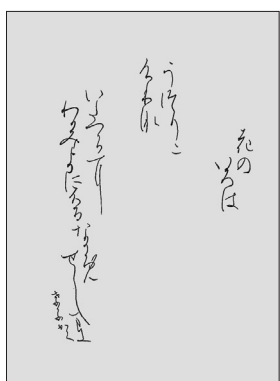 花の
いろは
うつりに
けりな
いたつらに
わかみよにふるなかめ
せしまに